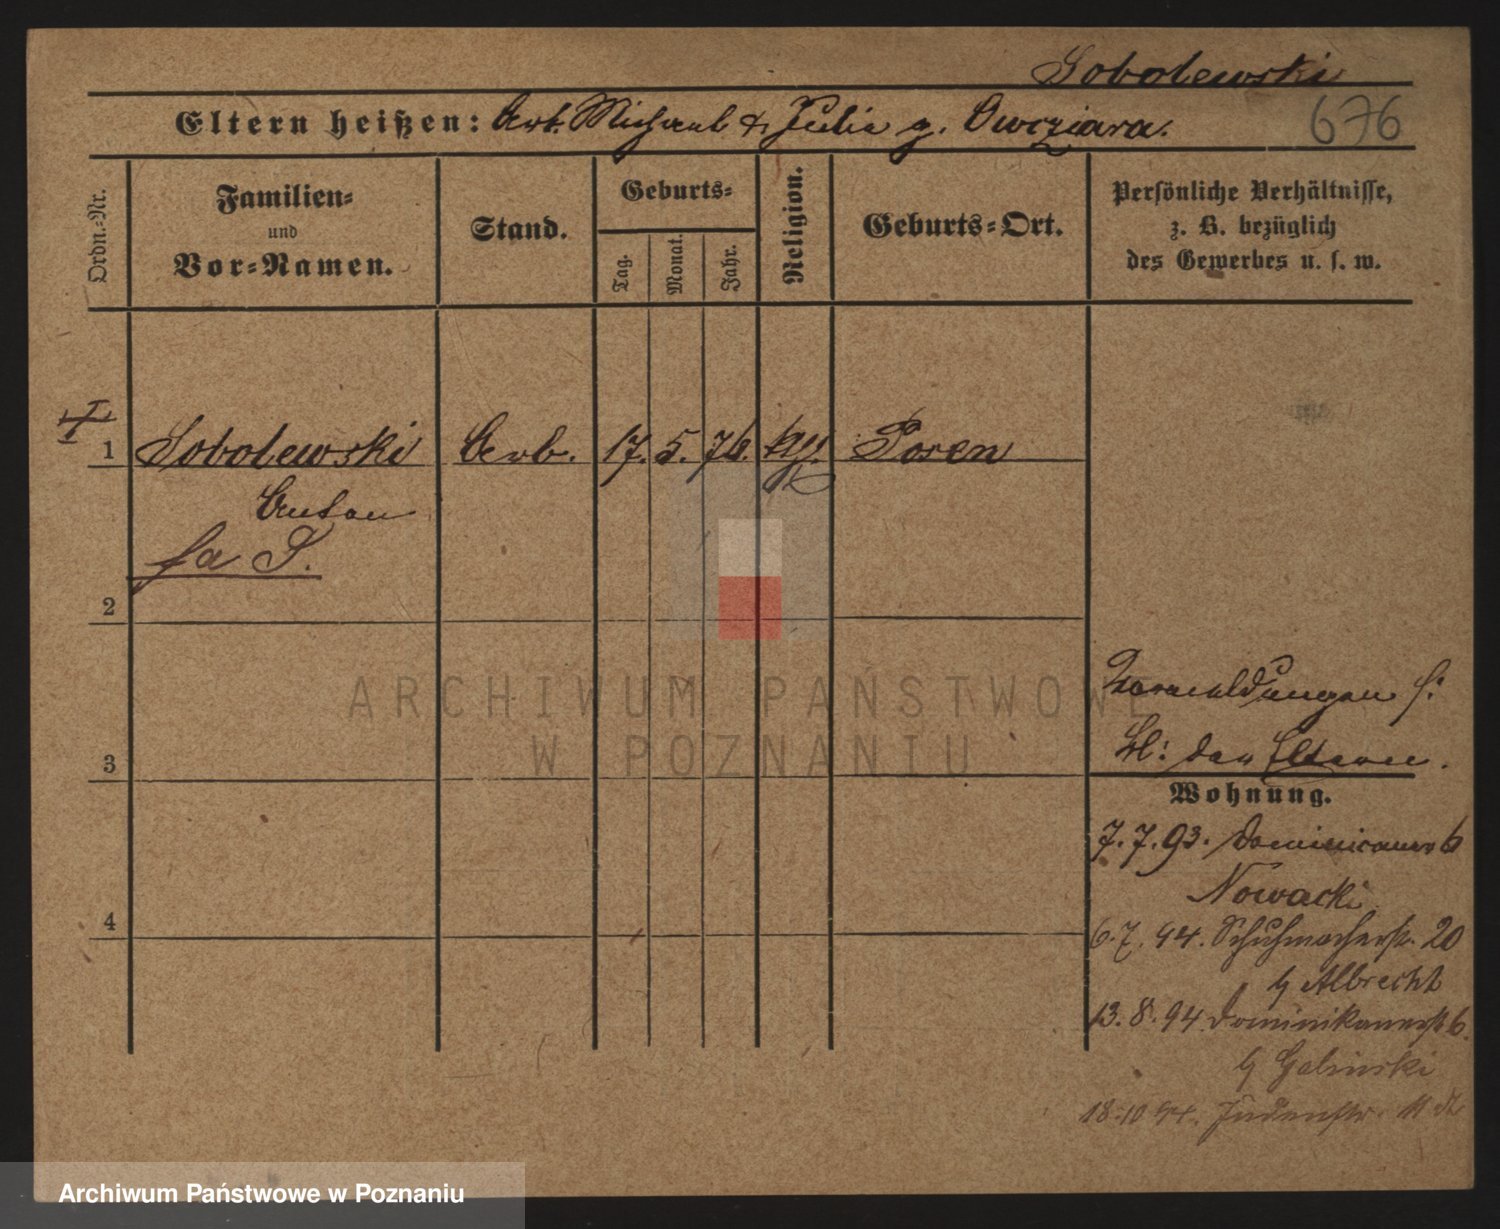 Sobolewski
Eltern heißen: Arb. Michael & Julie g. Owcziara.
676
Ordn.-Nr.
Familien-
und
Vor-Namen.
Stand.
Geburts-
Tag.
Monat.
Jahr.
Religion.
Geburts-Ort.
Persönliche Verhältnisse,
z. B. bezüglich
des Gewerbes u. s. w.
1 Sobolewski Arb. 17. 5. 76. Posen
Anton
2
ARCHIWUM PAŃSTWOWE
W POZNANIU
3
4
Vormeldungen s:
Bl: der Eltern.
Wohnung.
7. 7. 93. Dominicaner 6
Nowacki
6. 7. 94. Schuhmacherstr. 20
b/ Albrecht
13. 8. 94 Dominikanerstr 6.
b/ Galinski
18. 10 94. Judenstr. 11
Archiwum Państwowe w Poznaniu